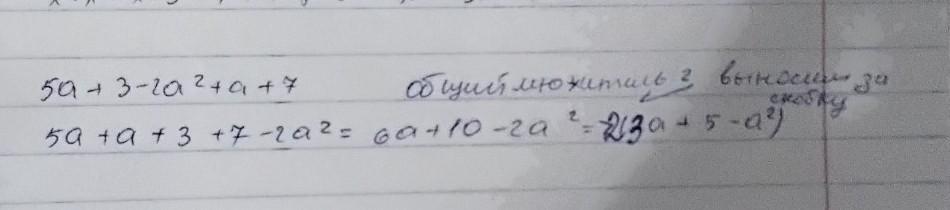 5a + 3 - 2a² + a + 7 общий множитель 2 выносим за скобку
5a + a + 3 + 7 - 2a² = 6a + 10 - 2a² = 2(3a + 5 - a²)